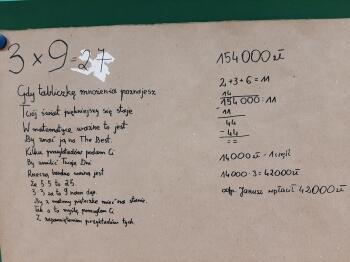 3 x 9 = 27
Gdy tabliczkę mnożenia poznajesz
Twój świat piękniejszy się staje
W matematyce ważne to jest
By znać ją na The Best.
Kilka przykładów podam Ci
By umilić Twoje Dni
Rzeczą bardzo ważną jest
Że 5·5 to 25.
3·3 za to 9 nam daje
By z matmy piąteczkę mieć na stanie.
Tak o to myślę pomogłam Ci
Z zapamiętaniem przykładów tych.
154 000 zł
2+3+6=11
14
154 000 : 11
-11
44
-44
==
14000 zł - 1 część
14000·3=42000 zł
odp. Janusz wpłacił 42000 zł